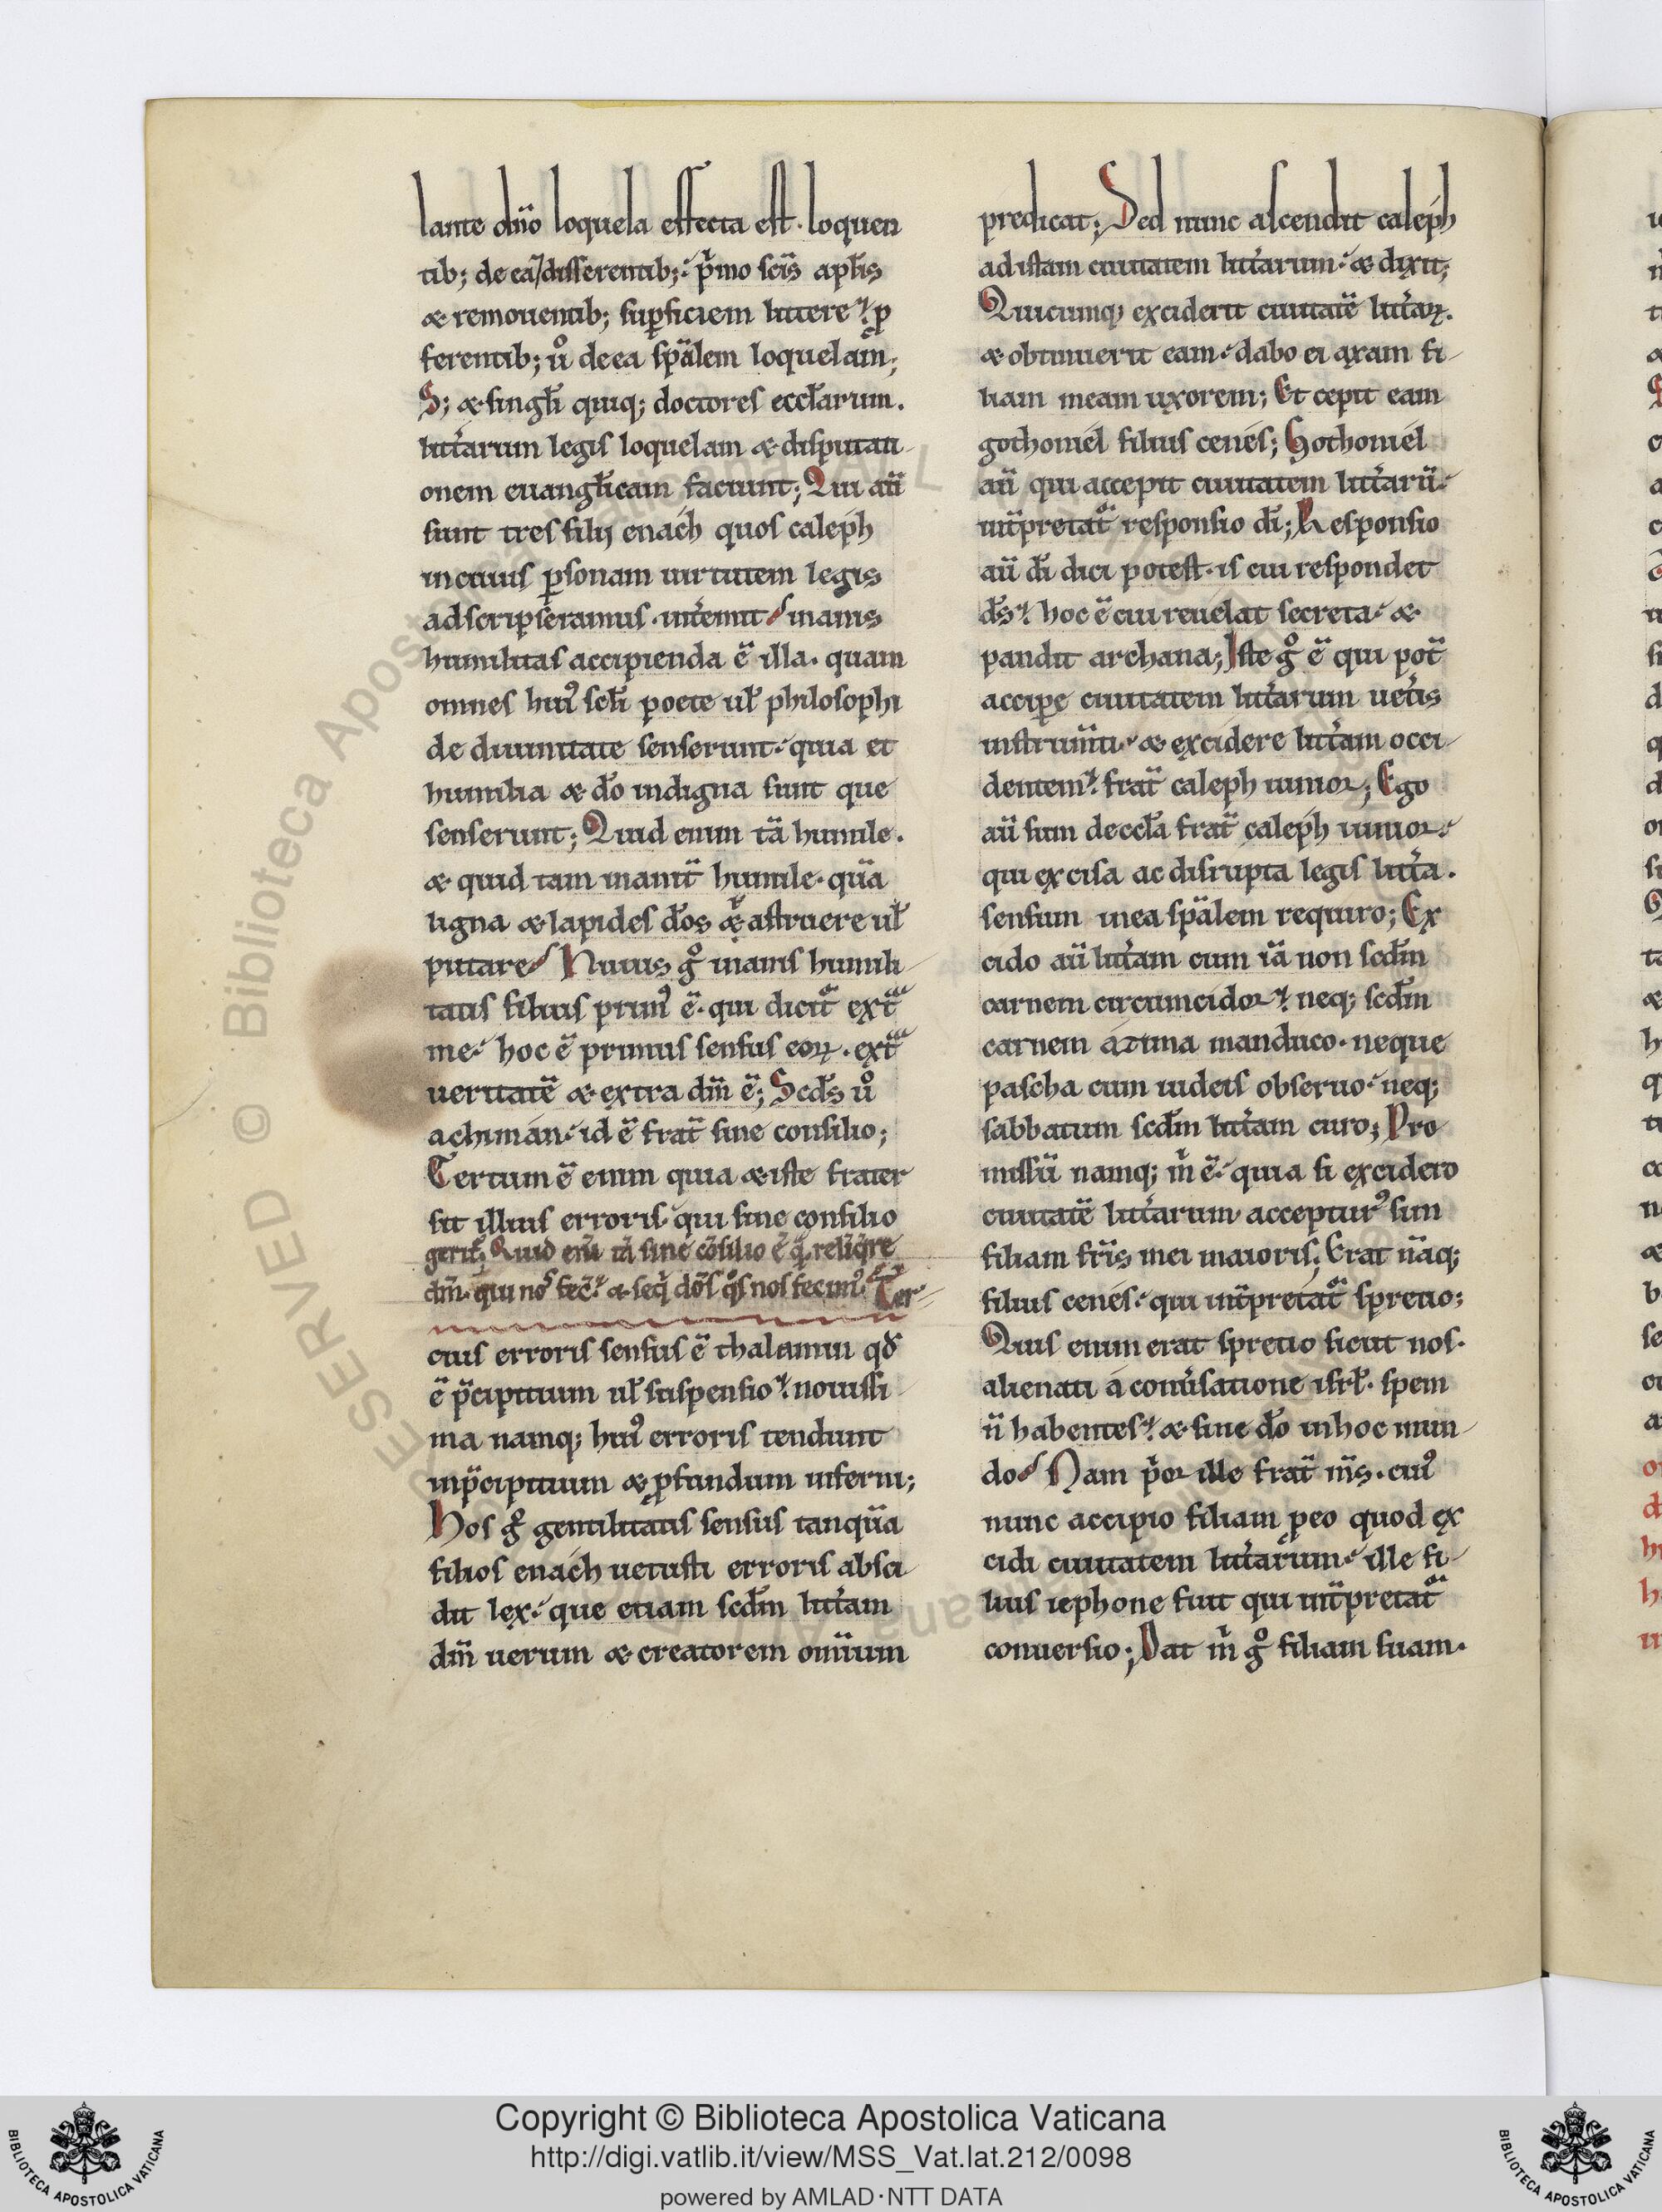 lante dño loquela effecta est· loquen
tib; de ea / disserentib; p̾mo sc̄is apl̄is
& remouentib; suꝑficiem littere ꝓ
ferentib; u̾o de ea sp̄alem loquelam;
S; & singl̄i quiq; doctores eccl̄arum.
litt̾arum legis loquelam & disputati
onem euangl̄icam faciunt; Qui aū
sunt tres filij enach quos caleph
in cuius ꝑsonam uirtutem legis
adscripseramus· int̾emit inanis
humilitas accipienda ē illa· quam
omnes hui᾽ scl̄i poete ul̄ philosophi
de diuinitate senserunt· quia et
humilia & d̄o indigna sunt que
senserunt; Quid enim tā humile.
& quid tam inanit̄ humile· quā
ligna & lapides d̄os & astruere ul̄
putare Huius g̊ inanis humili
tatis filius prim᾽ ē· qui dicit̄ ext̄
me· hoc ē primus sensus eoꝝ· ext̄
ueritatē & extra dm̄ ē; Scd̄s u̾o
achiman· id ē frat̄ sine consilio;
Certum ē enim quia & iste frater
sit illius erroris· qui sine consilio
gerit̄; Quid enī tā sine cōsilio ē q̄ relīq̄re
dm̄· qui nos fec̄· & seq̄ dōs q̊s nos fecim᾽ Ter
cius erroris sensus ē thalamin qd̄
ē p̄cipitium ul̄ suspensio· nouissi
ma namq; hui᾽ erroris tendunt
in p̄cipitium & ꝓfundum inferni;
Hos g̊ gentilitatis sensus tanquā
filios enach uetusti erroris absci
dit lex· que etiam scd̄m litt̾am
dm̄ uerum & creatorem omīum
predicat; Sed nunc ascendit caleph
ad istam ciuitatem litt̾arum· & dixit;
Quicumq; exciderit ciuitatē litt̾aꝝ.
& obtinuerit eam· dabo ei axam fi
liam meam uxorem; Et cepit eam
gothoniel filius cenes; Gothoniel
aū qui accepit ciuitatem litt̾arū·
int̄pretat̄ responsio dī; Responsio
aū dī dici potest· is cui respondet
d̄s· hoc ē cui reuelat secreta· &
pandit archana; Iste g̊ ē qui pot̄
acciꝑe ciuitatem litt̾arum uet̾is
instrum̄ti· & excidere litt̾am occi
dentem· frat̄ caleph iunior; Ego
aū sum de eccl̄a frat̄ caleph iunior·
qui excisa ac disrupta legis litt̾a.
sensum in ea sp̄alem requiro; Ex
cido aū litt̾am cum iā non scd̄m
carnem circumcidor· neq; scd̄m
carnem azima manduco· neque
pascha cum iudeis obseruo· neq;
sabbatum scd̄m litt̾am curo; Pro
missū namq; m̄ ē· quia si excidero
ciuitatē litt̾arum accepturᵉ sim
filiam fr̄is mei maioris; Erat nāq;
filius cenes· qui int̄pretat̄ spretio;
Quis enim erat spretio sicut nos·
alienati a conu̾satione isrl̄· spem
n̄ habentes· & sine d̄o in hoc mun
do Nam p̾or ille frat̄ m̄s· cui᾽
nunc accipio filiam ꝑ eo quod ex
cidi ciuitatem litt̾arum· ille fi
lius iephone fuit qui int̄pretat̄
conuersio; Dat m̄ g̊ filiam suam·
© Biblioteca Apostolica Vaticana ALL RIGHTS RESERVED
Copyright © Biblioteca Apostolica Vaticana
http://digi.vatlib.it/view/MSS_Vat.lat.212/0098
powered by AMLAD·NTT DATA
BIBLIOTECA APOSTOLICA VATICANA
BIBLIOTECA APOSTOLICA VATICANA